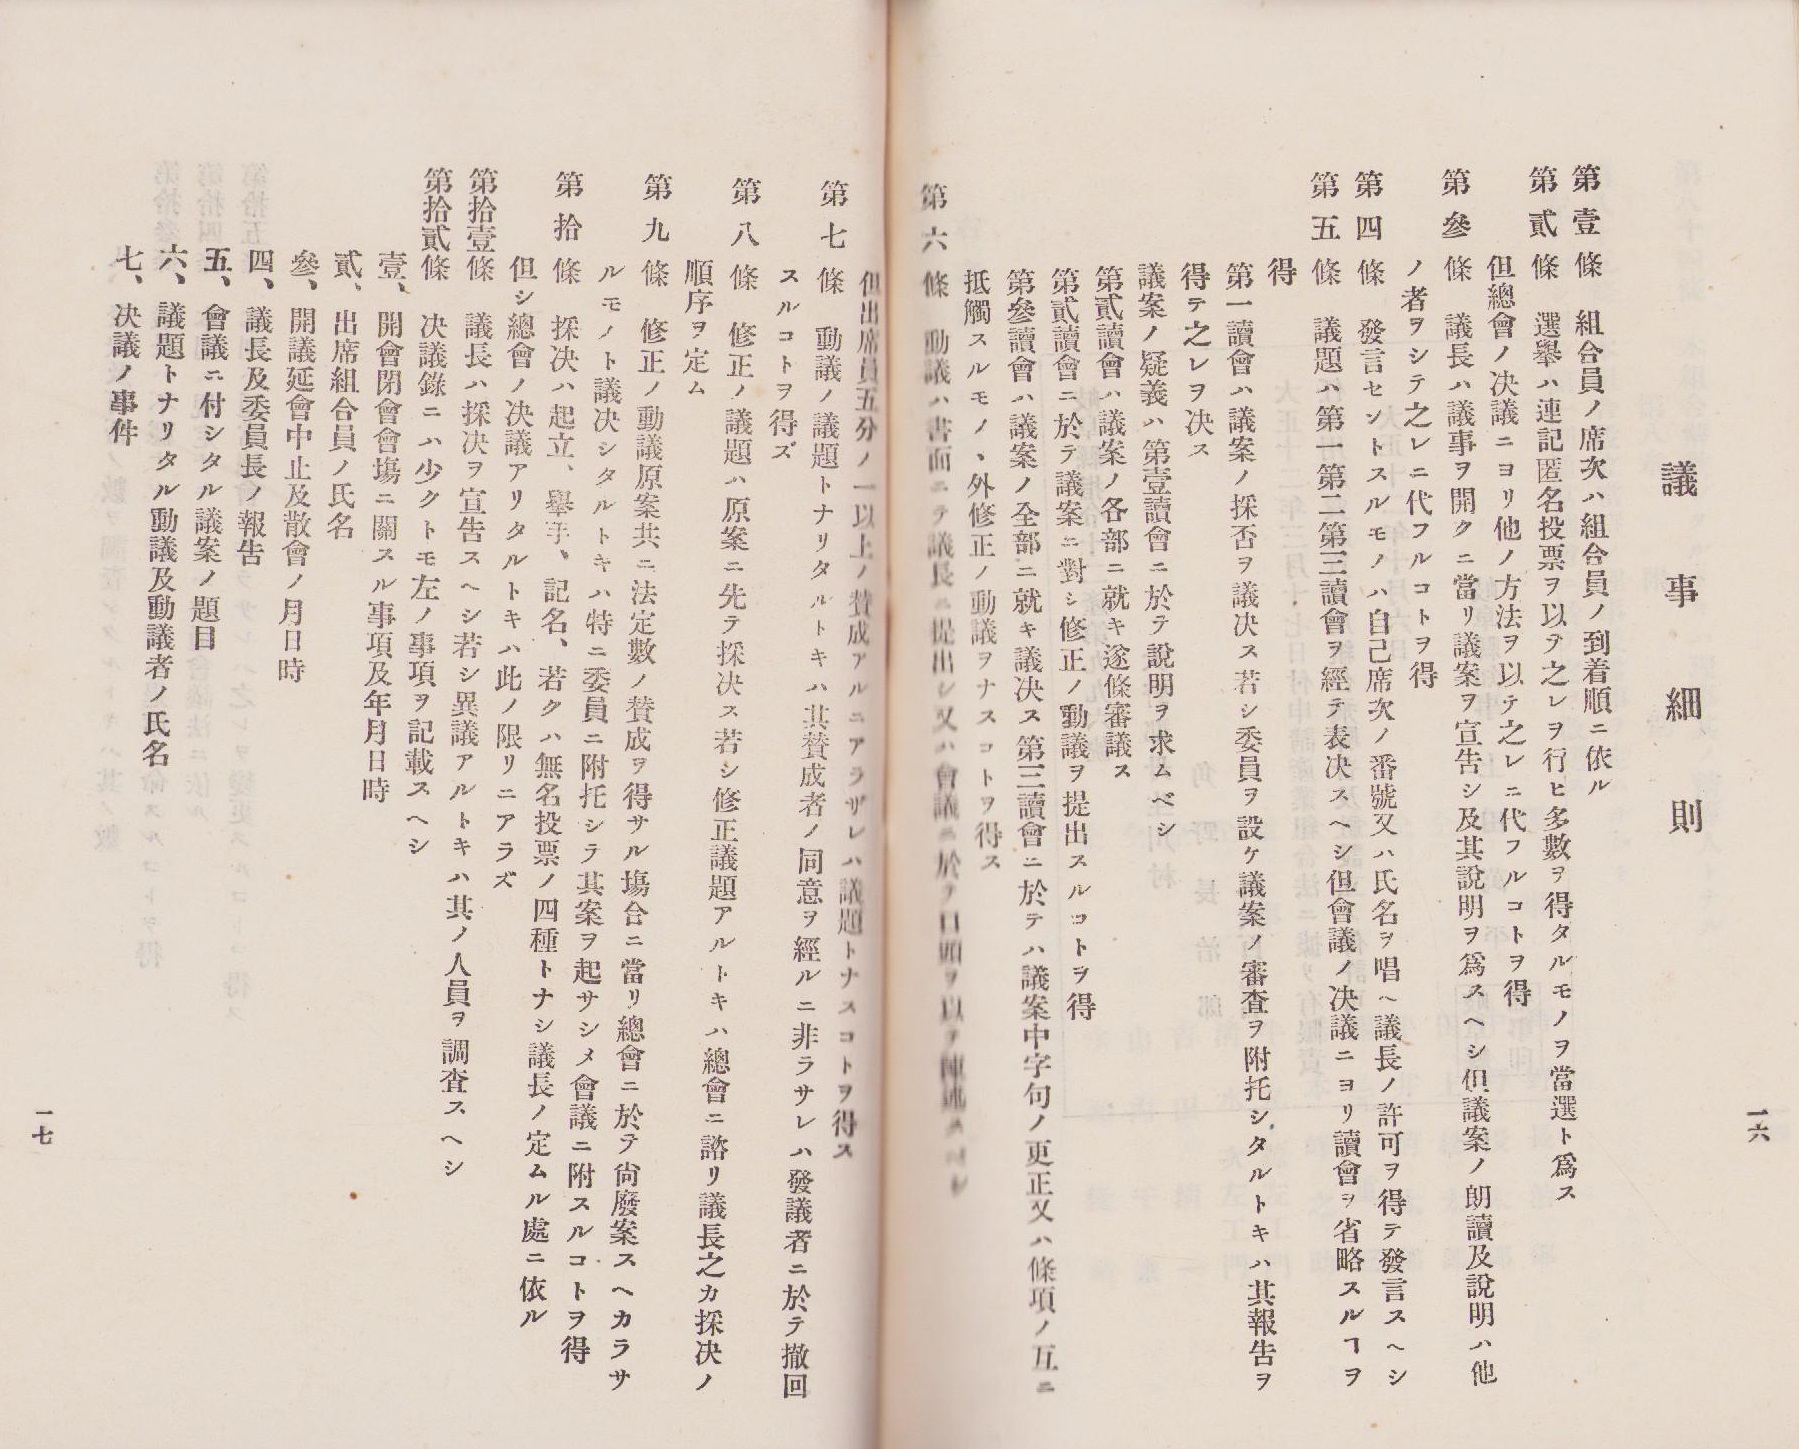 議事細則
第壹條　組合員ノ席次ハ組合員ノ到着順ニ依ル
第貳條　選擧ハ連記匿名投票ヲ以テ之レヲ行ヒ多數ヲ得タルモノヲ當選ト爲ス
但總會ノ決議ニヨリ他ノ方法ヲ以テ之レニ代フルコトヲ得
第參條　議長ハ議事ヲ開クニ當リ議案ヲ宣告シ及其說明ヲ爲スヘシ但議案ノ朗讀及說明ハ他
ノ者ヲシテ之レニ代フルコトヲ得
第四條　發言セントスルモノハ自己席次ノ番號又ハ氏名ヲ唱ヘ議長ノ許可ヲ得テ發言スヘシ
第五條　議題ハ第一第二第三讀會ヲ經テ表決スヘシ但會議ノ決議ニヨリ讀會ヲ省略スルヿヲ
得
第一讀會ハ議案ノ採否ヲ議決ス若シ委員ヲ設ケ議案ノ審査ヲ附托シタルトキハ其報告ヲ
得テ之レヲ決ス
議案ノ疑義ハ第壹讀會ニ於テ說明ヲ求ムベシ
第貳讀會ハ議案ノ各部ニ就キ逐條審議ス
第貳讀會ニ於テ議案ニ對シ修正ノ動議ヲ提出スルコトヲ得
第參讀會ハ議案ノ全部ニ就キ議決ス第三讀會ニ於テハ議案中字句ノ更正又ハ條項ノ互ニ
抵觸スルモノヽ外修正ノ動議ヲナスコトヲ得ス
第六條　動議ハ書面ニテ議長ニ提出シ又ハ會議ニ於テ口頭ヲ以テ陳述スヘシ
一六
但出席員五分ノ一以上ノ賛成アルニアラザレハ議題トナスコトヲ得ス
第七條　動議ノ議題トナリタルトキハ其賛成者ノ同意ヲ經ルニ非ラサレハ發議者ニ於テ撤回
スルコトヲ得ズ
第八條　修正ノ議題ハ原案ニ先テ採決ス若シ修正議題アルトキハ總會ニ諮リ議長之カ採決ノ
順序ヲ定ム
第九條　修正ノ動議原案共ニ法定數ノ賛成ヲ得サル塲合ニ當リ總會ニ於テ尙廢案スヘカラサ
ルモノト議決シタルトキハ特ニ委員ニ附托シテ其案ヲ起サシメ會議ニ附スルコトヲ得
第拾條　採決ハ起立、擧手、記名、若クハ無名投票ノ四種トナシ議長ノ定ムル處ニ依ル
但シ總會ノ決議アリタルトキハ此ノ限リニアラズ
第拾壹條　議長ハ採決ヲ宣告スヘシ若シ異議アルトキハ其ノ人員ヲ調査スヘシ
第拾貳條　決議錄ニハ少クトモ左ノ事項ヲ記載スヘシ
壹、開會閉會會塲ニ關スル事項及年月日時
貳、出席組合員ノ氏名
參、開議延會中止及散會ノ月日時
四、議長及委員長ノ報告
五、會議ニ付シタル議案ノ題目
六、議題トナリタル動議及動議者ノ氏名
七、決議ノ事件
一七